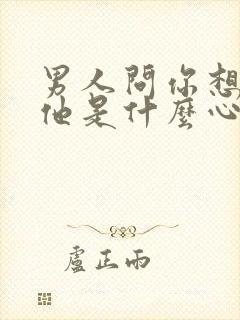 男人問你想
他是什麼心
盧正雨